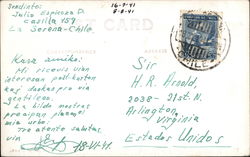 Sendinto:
Julio Espinoza P.
Casilla 159
La Serena-Chile.
16-7-41
8-8-41
POST CARD
CORRESPONDENCE
Kara amiko:
Mi ricevis vian
interesan poŝtkarton
kaj dankas pro via
gentileco.
La bildo montras
preĝejon plaĉan el
mia urbo.
Tre atente salutas
vin
18-VI-41.
CHILE
Sir
H. R. Arnold,
2038-21st. N.
Arlington,
Virginia
Estados Unidos